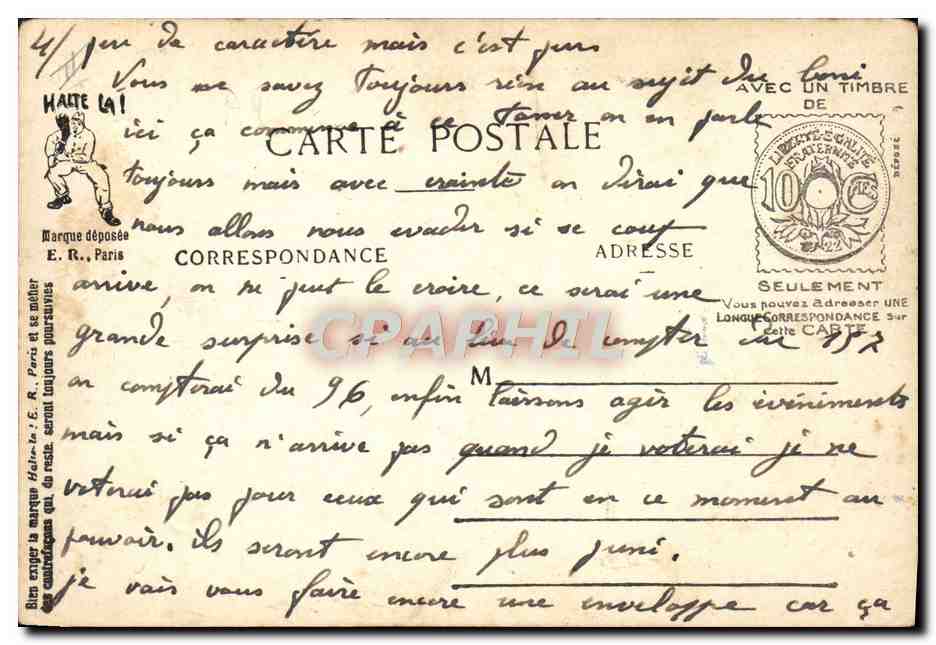 4/ peu de caractère mais c'est jeune
Vous me savez toujours rien au sujet du
AVEC UN TIMBRE
DE
HALTE LA!
ici ça commence à ce on en parle
CARTE POSTALE
LIBERTE·EGALITE
FRATERNITE
10 CMES
toujours mais avec crainte on dirai que
nous allons nous evader si se coup
Marque déposée
E. R., Paris
CORRESPONDANCE
ADRESSE
arrive, on ne peut le croire, ce serai une
SEULEMENT
Vous pouvez adresser UNE
LONGUE CORRESPONDANCE sur
cette CARTE
grande surprise si au lieu de compter du 157
CPARPHIL.COM
M
on compterai du 96, enfin laissons agir les événiments
mais si ça n'arrive pas quand je voterai je ne
voterai pas pour ceux qui sont en ce moment au
pouvoir. ils seront encore plus puni.
je vais vous faire encore une enveloppe car ça
Bien exiger la marque Halte-la! E. R., Paris et se méfier
des contrefaçons qui, du reste, seront toujours poursuivies